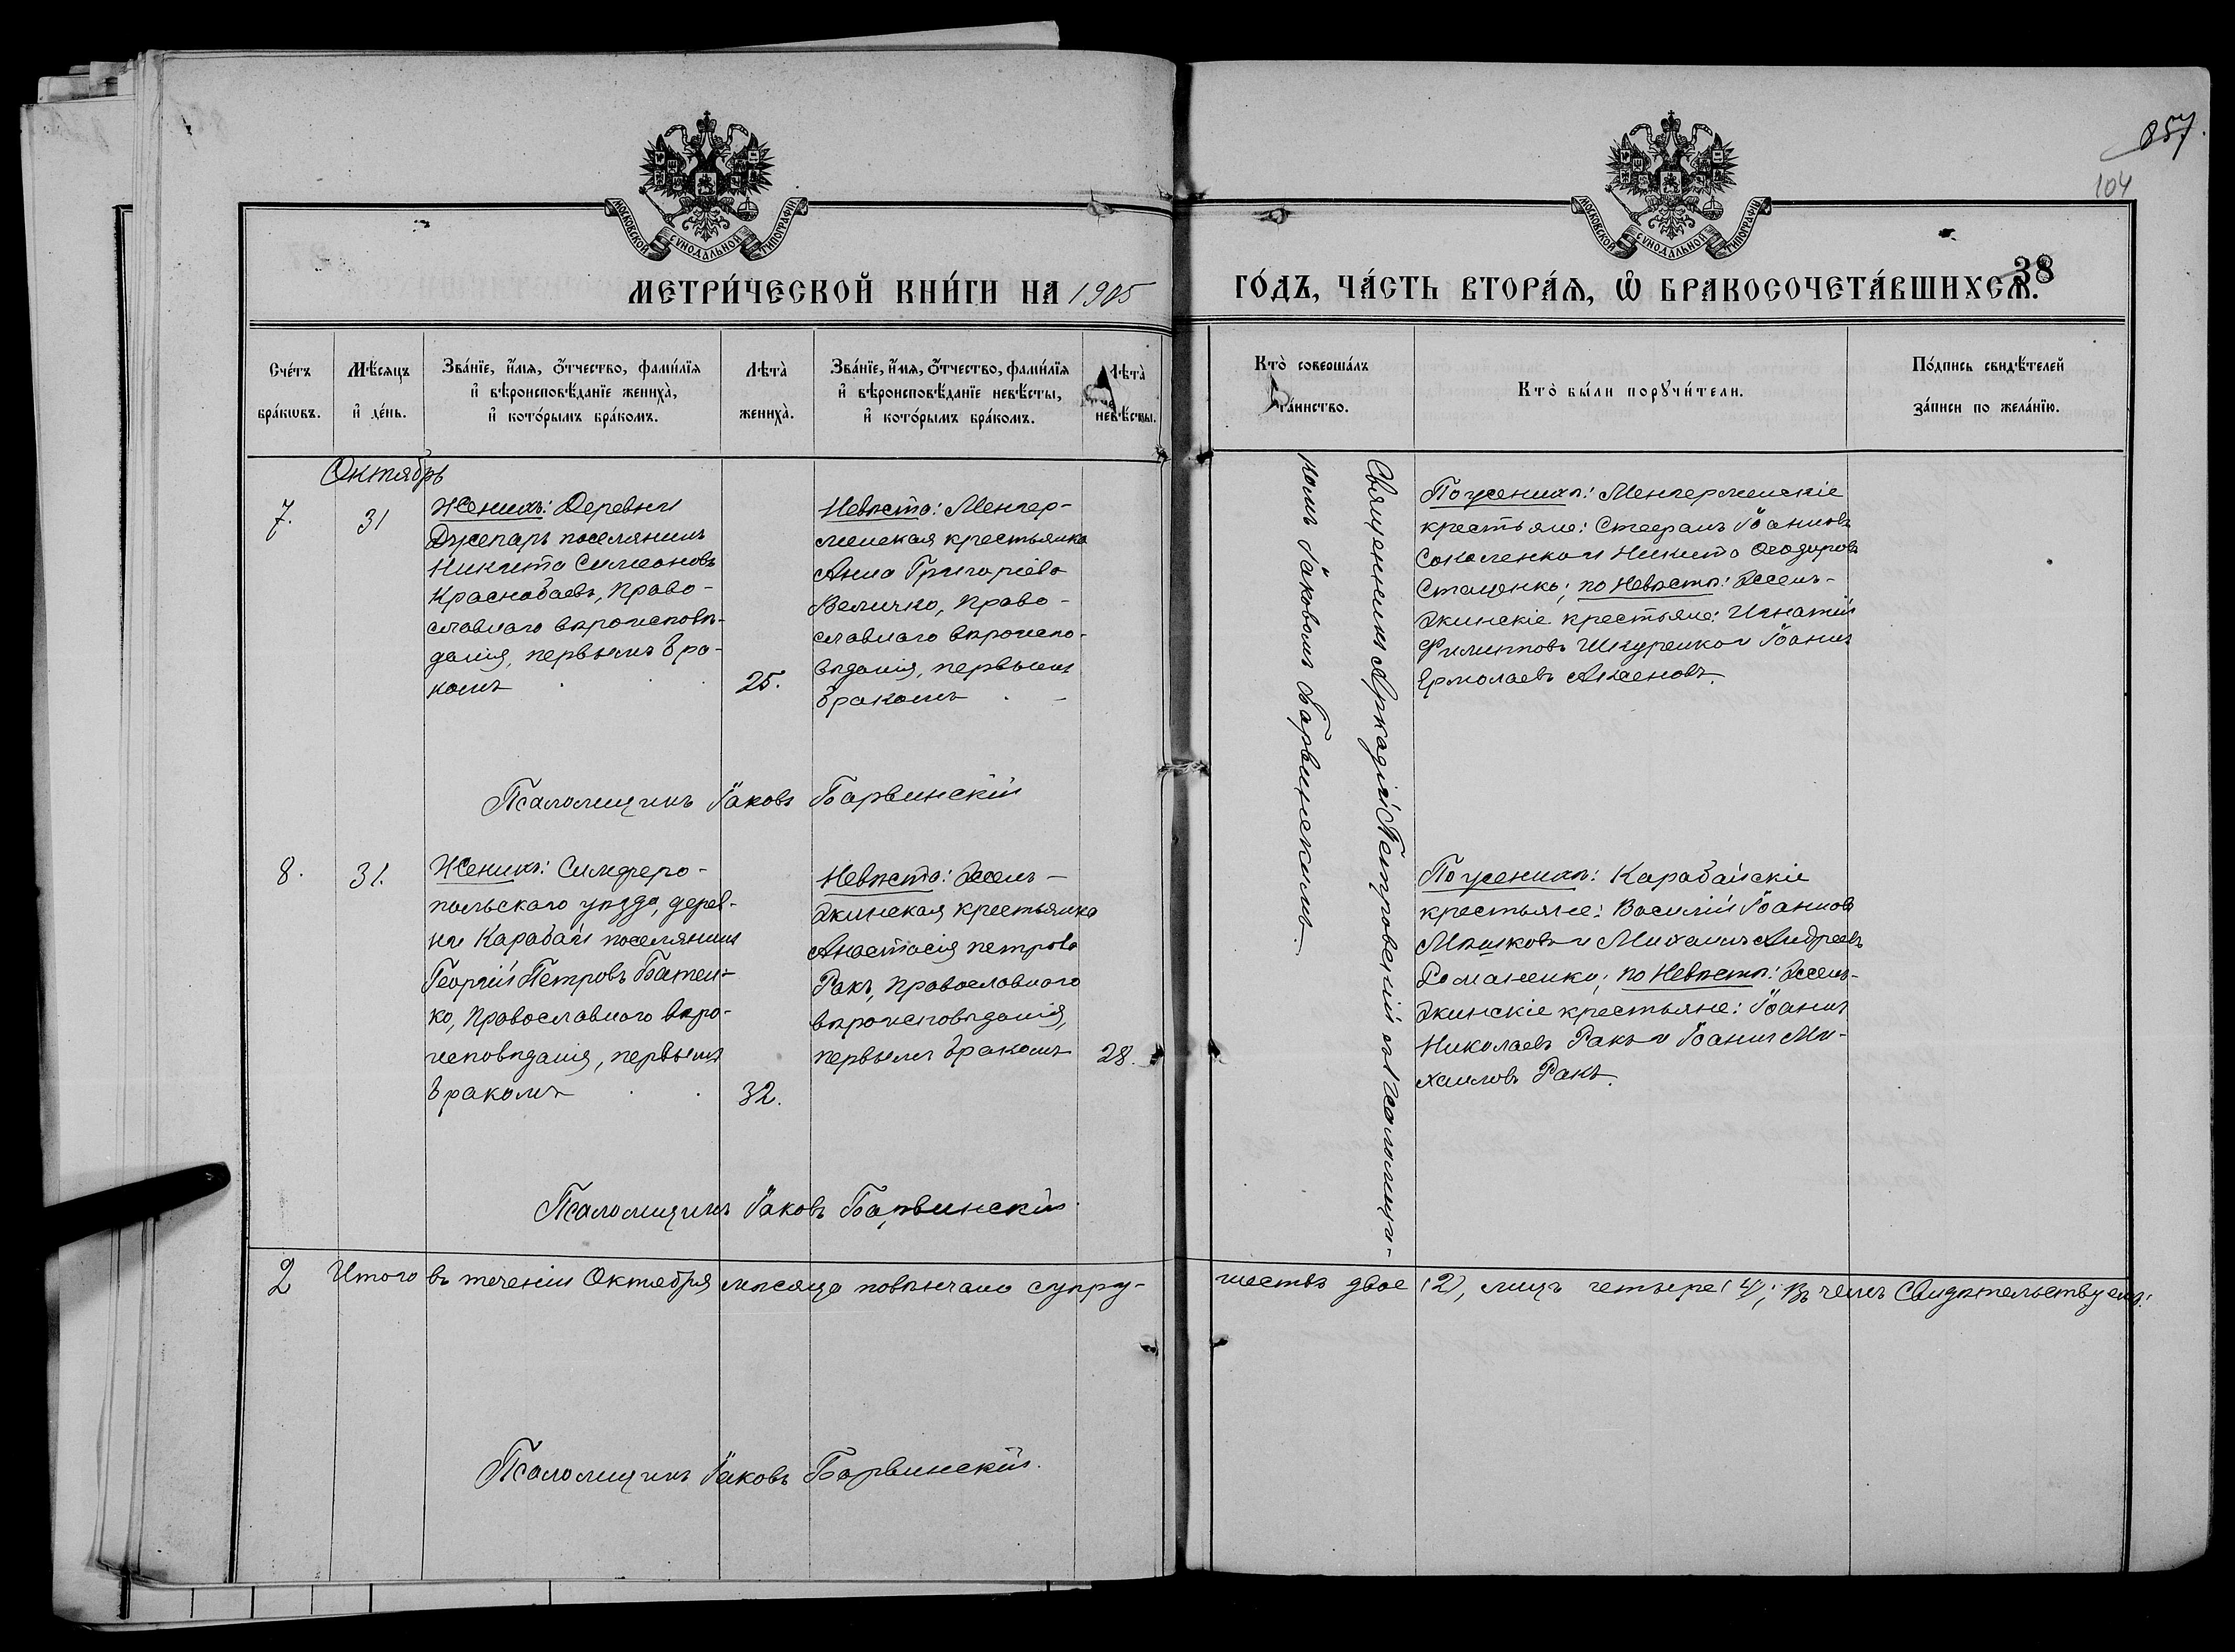 857.
104
МОСКОВСКОЙ СѴНОДАЛЬНОЙ ТИПОГРАФІИ
МОСКОВСКОЙ СѴНОДАЛЬНОЙ ТИПОГРАФІИ
МЕТРИ́ЧЕСКОЙ КНИ́ГИ НА 1905
ГО́ДЪ, ЧА́СТЬ ВТОРА́Ѧ, Ѡ҆ БРАКОСОЧЕТА́ВШИХСѦ.
38
Сче́тъ
бра́кѡвъ.
Мѣ́сѧцъ
и҆ де́нь.
Зва́нїе, и҆́мѧ, ѻ҆́тчество, фами́лїѧ
и҆ вѣроисповѣ́данїе жениха̀,
и҆ кото́рымъ бра́комъ.
Лѣта̀
жениха̀.
Зва́нїе, и҆́мѧ, ѻ҆́тчество, фами́лїѧ
и҆ вѣроисповѣ́данїе невѣ́сты,
и҆ кото́рымъ бра́комъ.
Лѣта̀
невѣ́сты.
Кто̀ соверша́лъ
та́инство.
Кто̀ бы́ли порꙋчи́тели.
По́дпись свидѣ́телей
за́писи по жела́нїю.
Октябрь
7.
31
Женихъ: Деревни
Джепаръ поселянинъ
Никита Симеоновъ
Краснобаевъ, Право-
славнаго вѣроисповѣ-
данія, первымъ бра-
комъ
25.
Невѣста: Менлер-
менская крестьянка
Анна Григоріева
Величко, Право-
славнаго вѣроиспо-
вѣданія, первымъ
бракомъ
Священникъ Аркадій Петровскій съ псаломщи-
комъ Іаковомъ Барвинскимъ.
По женихѣ: Менлерменскіе
крестьяне: Стефанъ Іоанновъ
Соколенко и Никита Ѳеодоровъ
Стаценко; по Невѣстѣ: Ессенъ-
Экинскіе крестьяне: Игнатій
Филиповъ Шкуренко и Іоаннъ
Ермолаевъ Аксеновъ.
Псаломщикъ Іаковъ Барвинскій
8.
31.
Женихъ: Симферо-
польскаго уѣзда, дерев-
ни Карабай поселянинъ
Георгій Петровъ Батен-
ко, Православнаго вѣро-
исповѣданія, первымъ
бракомъ
32.
Невѣста: Ессенъ-
Экинская крестьянка
Анастасія Петрова
Ракъ, Православнаго
вѣроисповѣданія,
первымъ бракомъ
28.
По женихѣ: Карабайскіе
крестьяне: Василій Іоанновъ
Мѣшковъ и Михаилъ Андреевъ
Романенко; по Невѣстѣ: Ессенъ-
Экинскіе крестьяне: Іоаннъ
Николаевъ Ракъ и Іоаннъ Ми-
хаиловъ Ракъ.
Псаломщикъ Іаковъ Барвинскій
2 Итого въ теченіи Октября мѣсяца повѣнчано супру-
жествъ двое (2), лицъ четыре (4); въ чемъ Свидѣтельствуемъ:
Псаломщикъ Іаковъ Барвинскій.